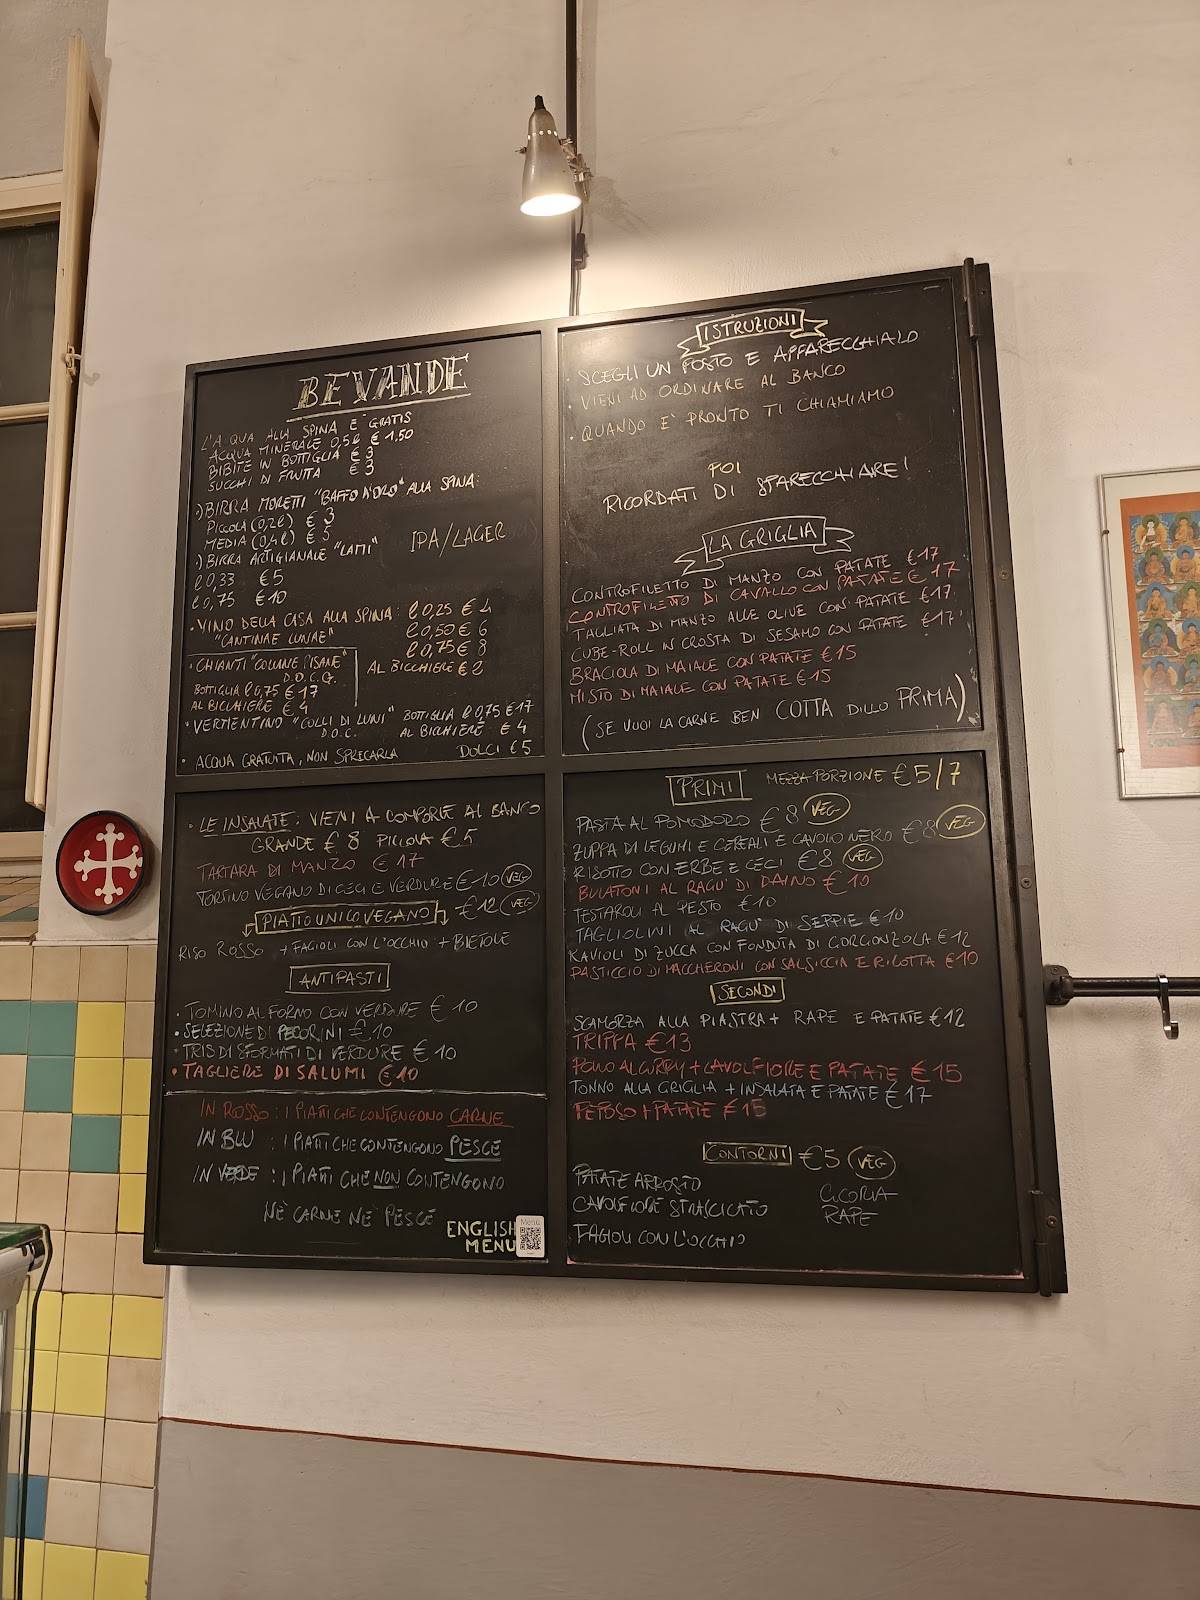 BEVANDE
L'ACQUA ALLA SPINA E' GRATIS
ACQUA MINERALE 0,5l € 1.50
BIBITE IN BOTTIGLIA € 3
SUCCHI DI FRUTTA € 3
·) BIRRA MORETTI "BAFFO D'ORO" ALLA SPINA:
PICCOLA (0,2l) € 3
MEDIA (0,4l) € 5
·) BIRRA ARTIGIANALE "LAMI" IPA/LAGER
l 0,33 € 5
l 0,75 € 10
· VINO DELLA CASA ALLA SPINA: l 0,25 € 4
"CANTINAE LUNAE" l 0,50 € 6
l 0,75 € 8
AL BICCHIERE € 2
· CHIANTI "COLLINE PISANE"
D.O.C.G.
BOTTIGLIA l 0,75 € 17
AL BICCHIERE € 4
· VERMENTINO "COLLI DI LUNI" BOTTIGLIA l 0,75 € 17
D.O.C. AL BICCHIERE € 4
· ACQUA GRATUITA, NON SPRECARLA DOLCI € 5
ISTRUZIONI
· SCEGLI UN POSTO E APPARECCHIALO
· VIENI AD ORDINARE AL BANCO
· QUANDO E' PRONTO TI CHIAMIAMO
POI
RICORDATI DI SPARECCHIARE!
LA GRIGLIA
CONTROFILETTO DI MANZO CON PATATE € 17
CONTROFILETTO DI CAVALLO CON PATATE € 17
TAGLIATA DI MANZO ALLE OLIVE CON PATATE € 17
CUBE-ROLL IN CROSTA DI SESAMO CON PATATE € 17
BRACIOLA DI MAIALE CON PATATE € 15
MISTO DI MAIALE CON PATATE € 15
(SE VUOI LA CARNE BEN COTTA DILLO PRIMA)
· LE INSALATE: VIENI A COMPORLE AL BANCO
GRANDE € 8 PICCOLA € 5
TARTARA DI MANZO € 17
TORTINO VEGANO DI CECI E VERDURE € 10 VEG
PIATTO UNICO VEGANO € 12 VEG
RISO ROSSO + FAGIOLI CON L'OCCHIO + BIETOLE
ANTIPASTI
· TOMINO AL FORNO CON VERDURE € 10
· SELEZIONE DI PECORINI € 10
· TRIS DI SFORMATI DI VERDURE € 10
· TAGLIERE DI SALUMI € 10
IN ROSSO: I PIATTI CHE CONTENGONO CARNE
IN BLU : I PIATTI CHE CONTENGONO PESCE
IN VERDE : I PIATTI CHE NON CONTENGONO
NÈ CARNE NÈ PESCE
ENGLISH
MENU
Menu
PRIMI MEZZA PORZIONE € 5/7
PASTA AL POMODORO € 8 VEG
ZUPPA DI LEGUMI E CEREALI E CAVOLO NERO € 8 VEG
RISOTTO CON ERBE E CECI € 8 VEG
BULATONI AL RAGU' DI DAINO € 10
TESTAROLI AL PESTO € 10
TAGLIOLINI AL RAGU' DI SEPPIE € 10
RAVIOLI DI ZUCCA CON FONDUTA DI GORGONZOLA € 12
PASTICCIO DI MACCHERONI CON SALSICCIA E RICOTTA € 10
SECONDI
SCAMORZA ALLA PIASTRA + RAPE E PATATE € 12
TRIPPA € 13
POLLO AL CURRY + CAVOLFIORE E PATATE € 15
TONNO ALLA GRIGLIA + INSALATA E PATATE € 17
PEPOSO + PATATE € 15
CONTORNI € 5 VEG
PATATE ARROSTO CICORIA
CAVOLFIORE STRASCICATO RAPE
FAGIOLI CON L'OCCHIO